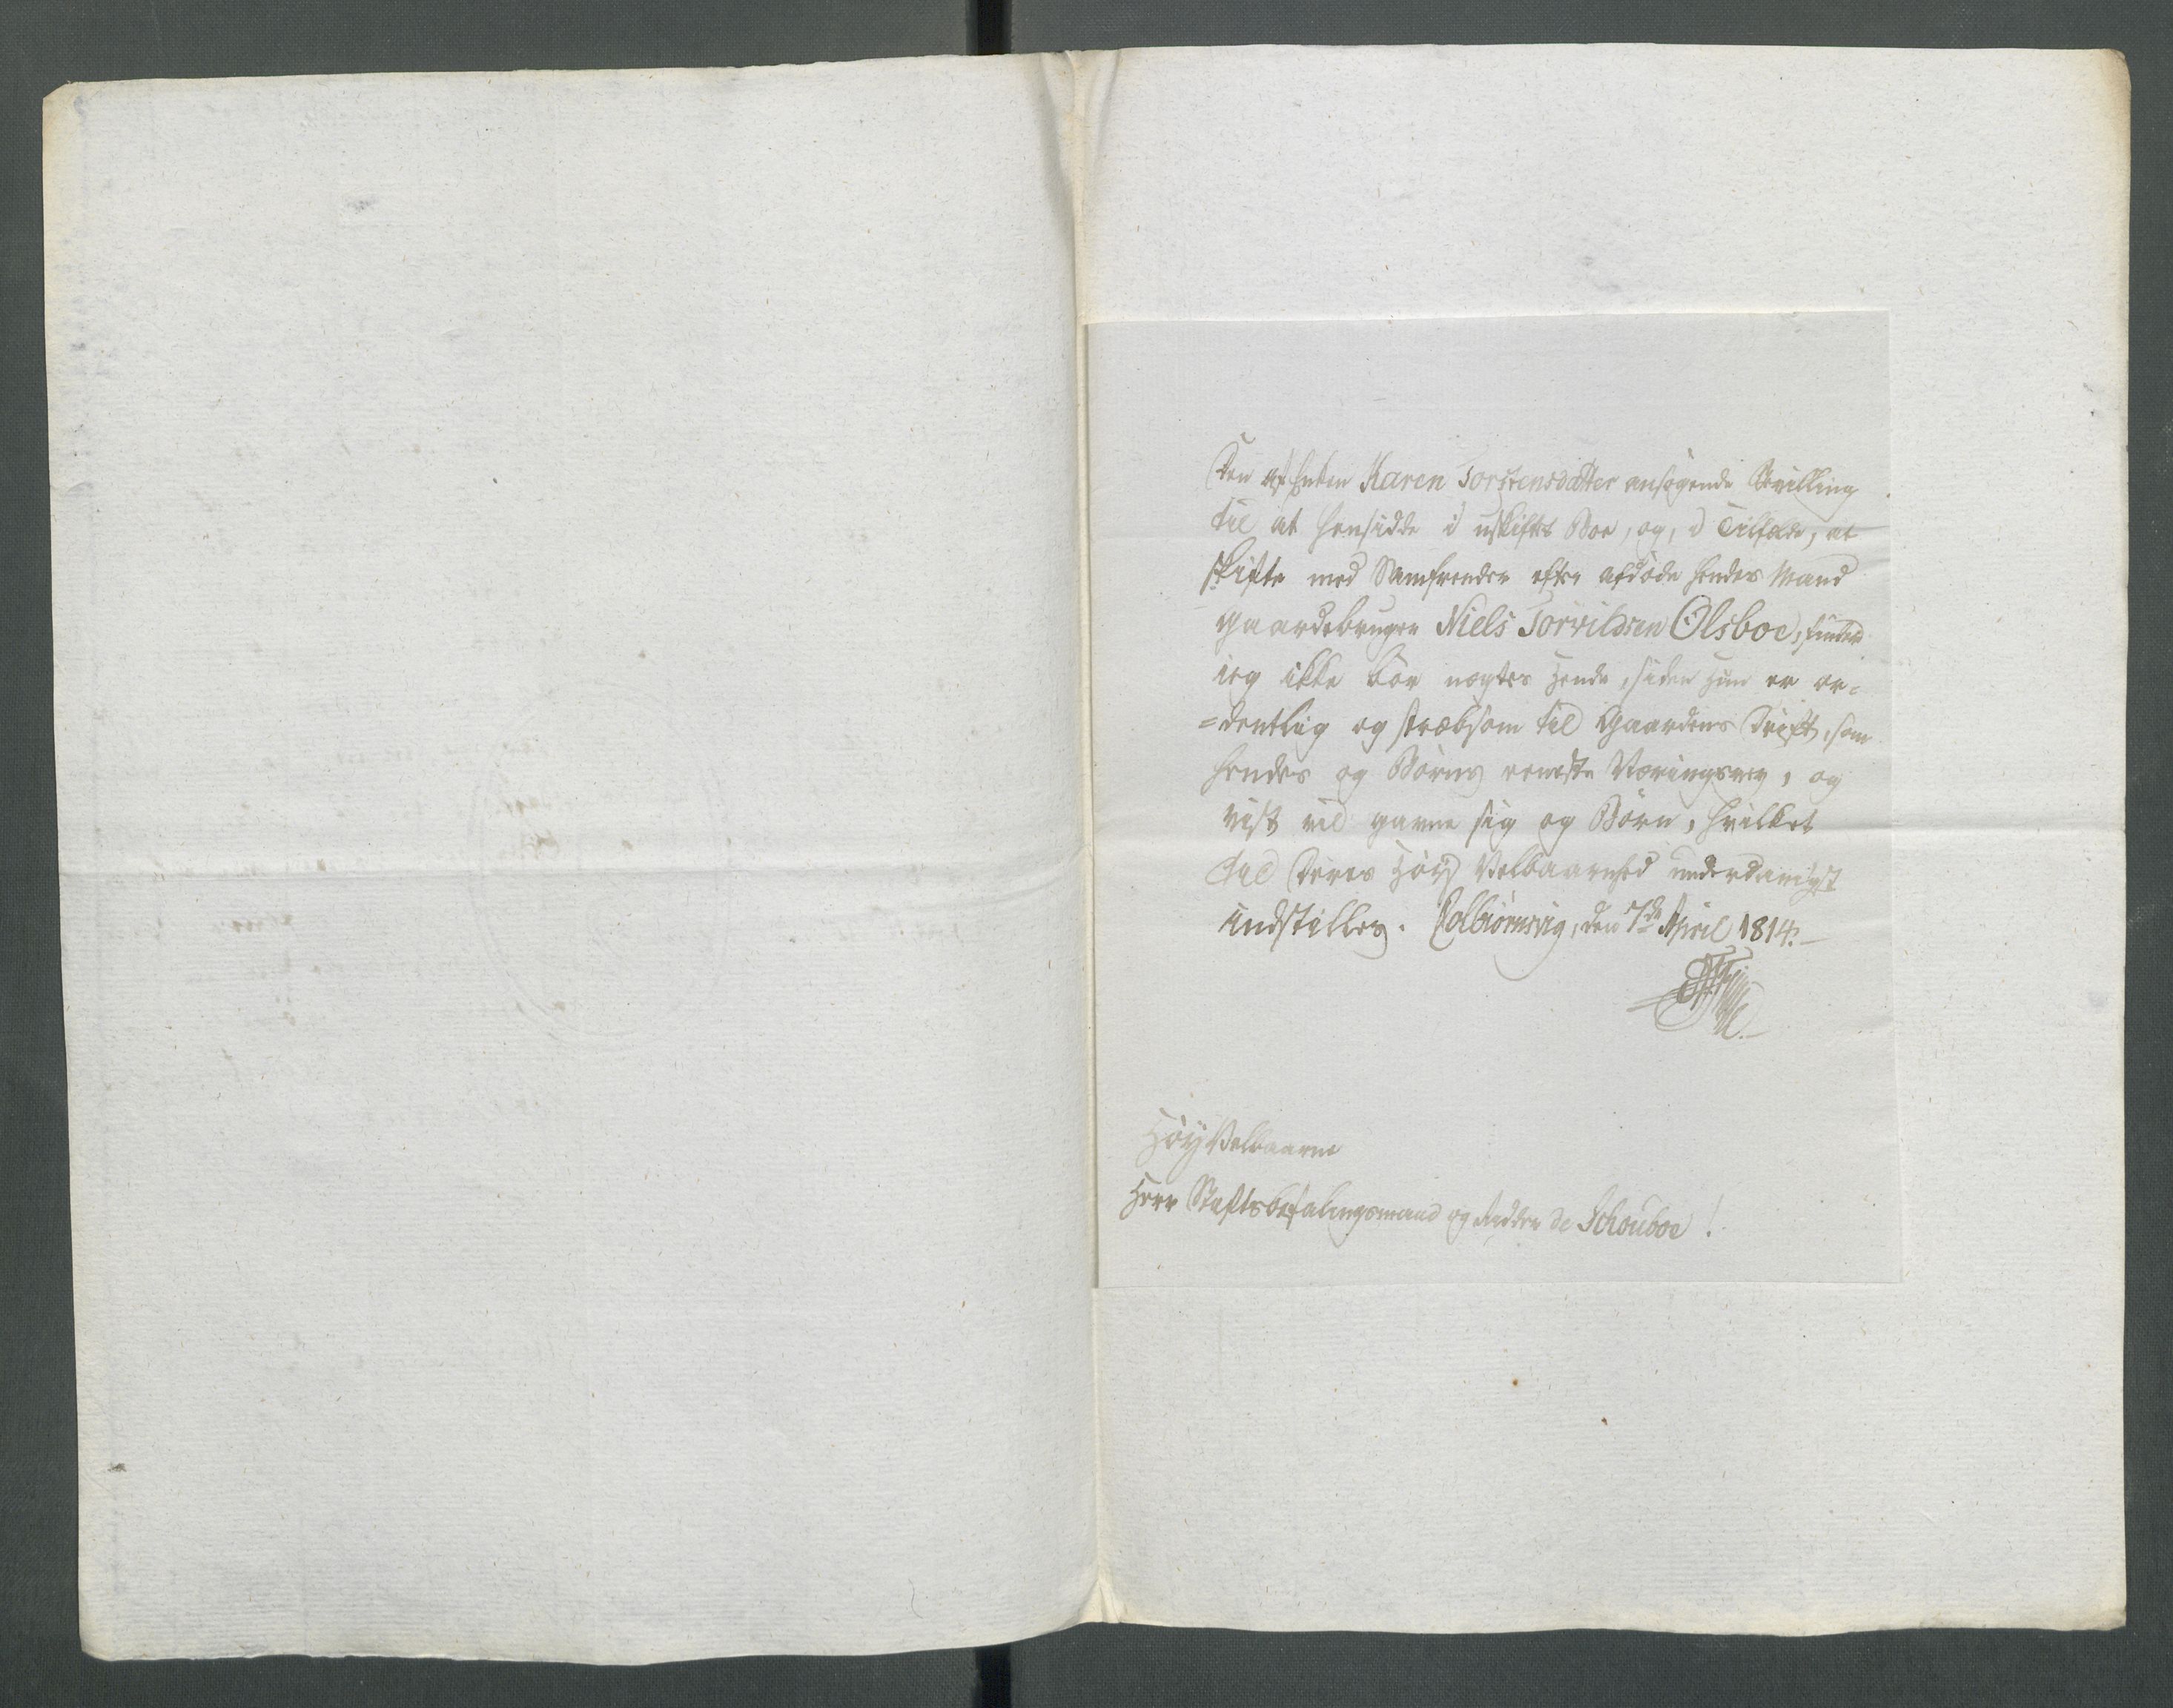 Den af Enken Karen Torstensdatter ansøgende Bevilling
til at hensidde i uskiftet Boe, og, i Tilfælde, at
skifte med Samfrender efter afdøde hendes Mand
Gaardebruger Niels Torvildsen Ølsboe, finder
ieg ikke bør nægtes Hende, siden Hun er or-
=dentlig og stræbsom til Gaardens Drift, som
hendes og Børns eeneste Næringsvey, og
vist vil gavne sig og Børn, hvilket
til Deres Høy Velbaarenhed underdanigst
indstilles. Colbiørnsvig, den 7de April 1814.
Høy Velbaarne
Herr Stiftsbefalingsmand og Ridder de Schouboe!